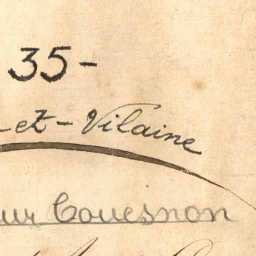 35-
-et-Vilaine
ur Couesnon